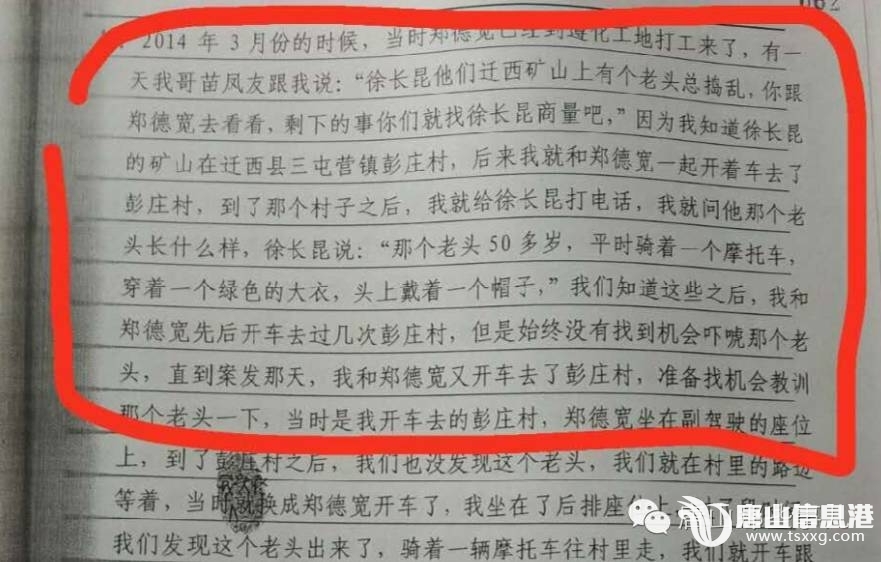 062
2014年3月份的时候，当时郑德宽已经到遵化工地打工来了，有一
天我哥苗凤友跟我说：“徐长昆他们迁西矿山上有个老头总捣乱，你跟
郑德宽去看看，剩下的事你们就找徐长昆商量吧，”因为我知道徐长昆
的矿山在迁西县三屯营镇彭庄村，后来我就和郑德宽一起开着车去了
彭庄村，到了那个村子之后，我就给徐长昆打电话，我就问他那个老
头长什么样，徐长昆说：“那个老头50多岁，平时骑着一个摩托车，
穿着一个绿色的大衣，头上戴着一个帽子，”我们知道这些之后，我和
郑德宽先后开车去过几次彭庄村，但是始终没有找到机会吓唬那个老
头，直到案发那天，我和郑德宽又开车去了彭庄村，准备找机会教训
那个老头一下，当时是我开车去的彭庄村，郑德宽坐在副驾驶的座位
上，到了彭庄村之后，我们也没发现这个老头，我们就在村里的路边
等着，当时就换成郑德宽开车了，我坐在了后排座位上
我们发现这个老头出来了，骑着一辆摩托车往村里走，我们就开车跟
唐山信息港
www.tsxxg.com